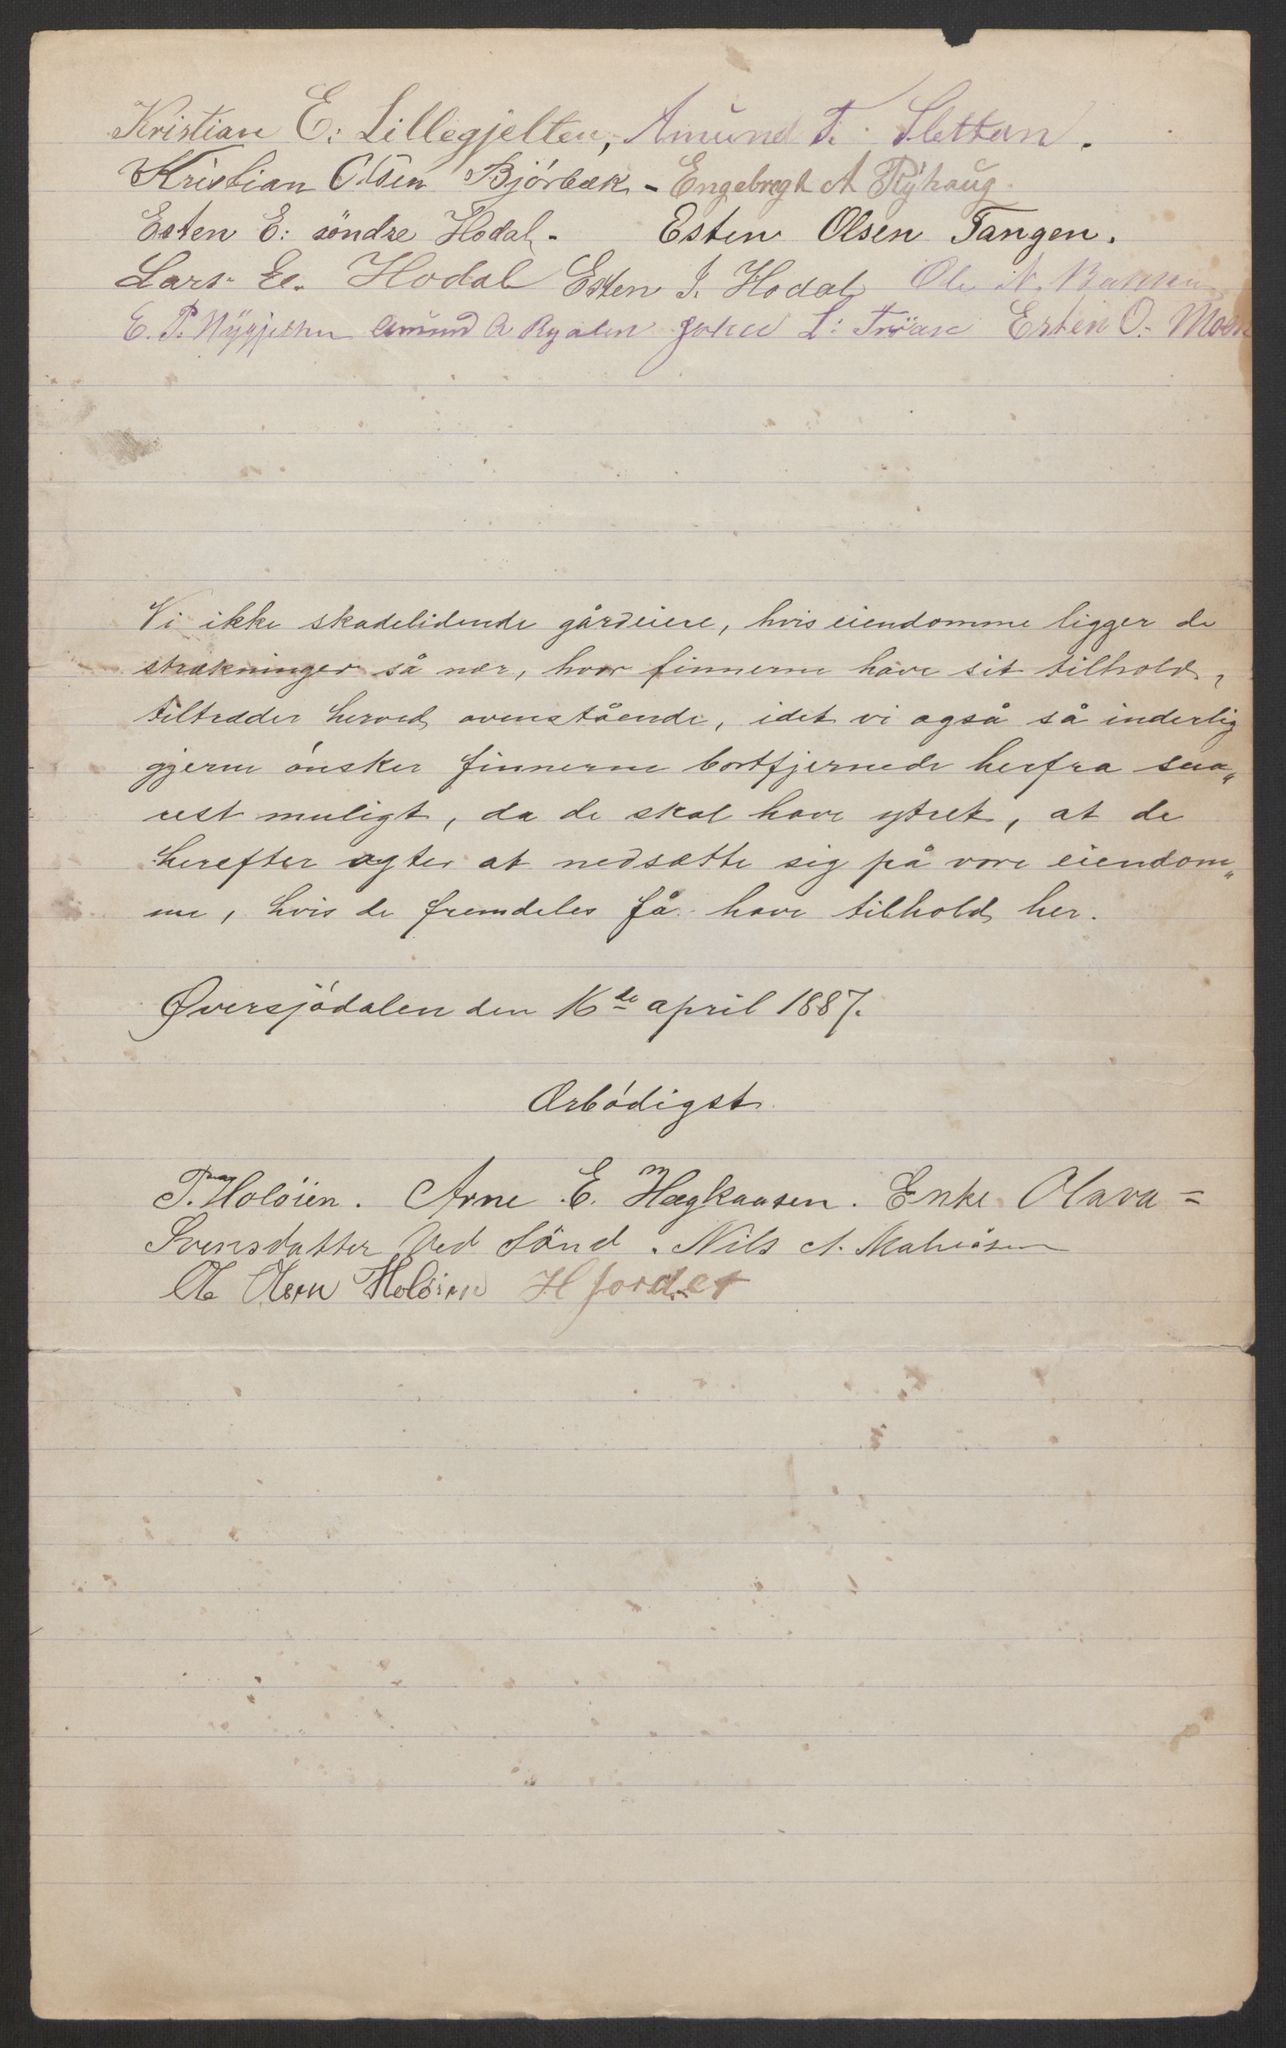 Kristian E: Lillegjelten, Amund T. Slettan.
Kristian Olsen Bjórbæk - Engebregt A Rÿhaug.
Esten E: söndre Hodal - Esten Olsen Tangen.
Lars E. Hodal Esten J. Hodal Ole N. Bakken
E. P. Nÿgjelten Amund A Ryalen John L: Trøan Esten O. Moen
Vi ikke skadelidende gårdeiere, hvis eiendomme ligger de
strækninger så nær, hvor finnerne have sit tilhold,
tiltræder herved ovenstående, idet vi også så inderlig
gjerne ónsker finnerne bortfjernede herfra sna„
rest muligt, da de skal have ytret, at de
herefter agter at nedsætte sig på vore eiendom„
me, hvis de fremdeles få have tilhold her.
Øversjódalen den 16de april 1887.
Ærbódigst
P. Holöien. Arne E. Hægkaasen. Enke Olava =
Svensdatter Ved Sönd. Nils A.
Ole Olsen Holöien H Jordet